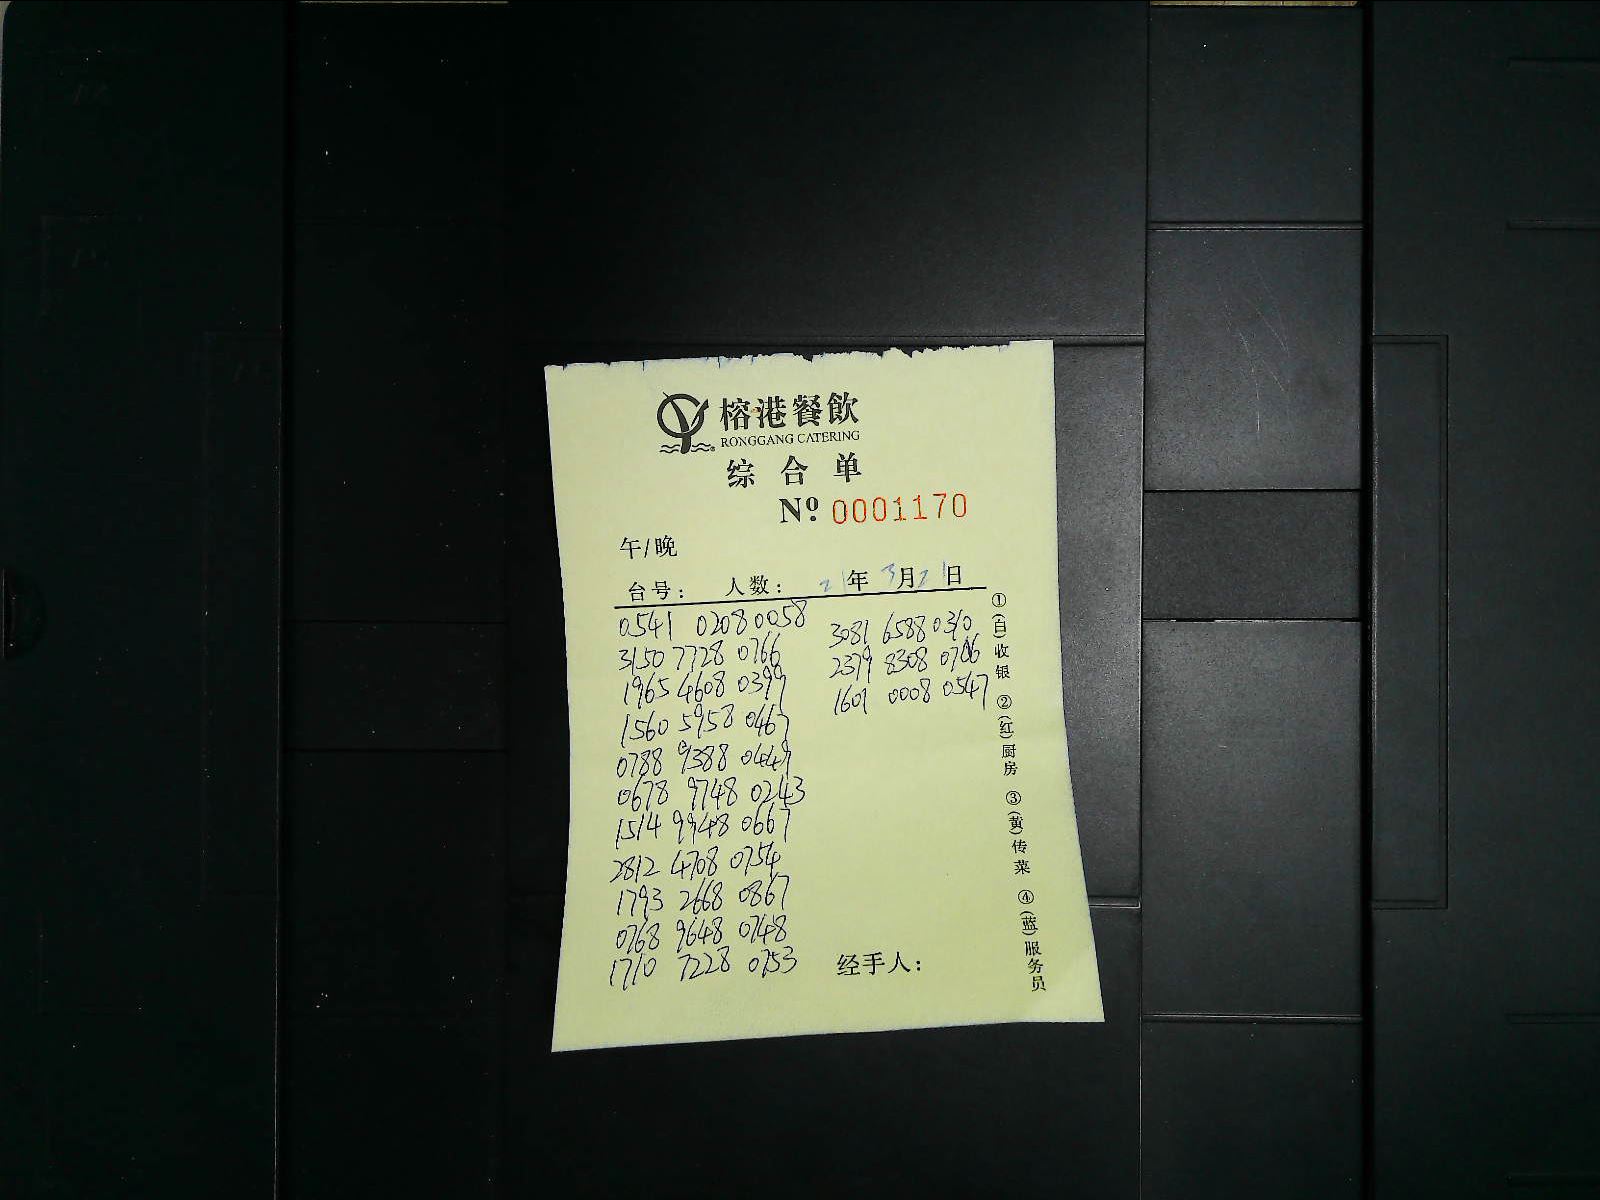 榕港餐飲
RONGGANG CATERING
综合单
Nº 0001170
午/晚
台号: 人数: 21年3月21日
0541 0208 0058
3150 7728 0766
1965 4608 0399
1560 5958 0467
0788 9388 0449
0678 9748 0243
1514 9948 0667
2812 4708 0754
1793 2668 0867
0768 9648 0748
1710 7228 0753
3081 6588 0310
2379 8308
1601 0008 0547
经手人:
①(白)收银 ②(红)厨房 ③(黄)传菜 ④(蓝)服务员